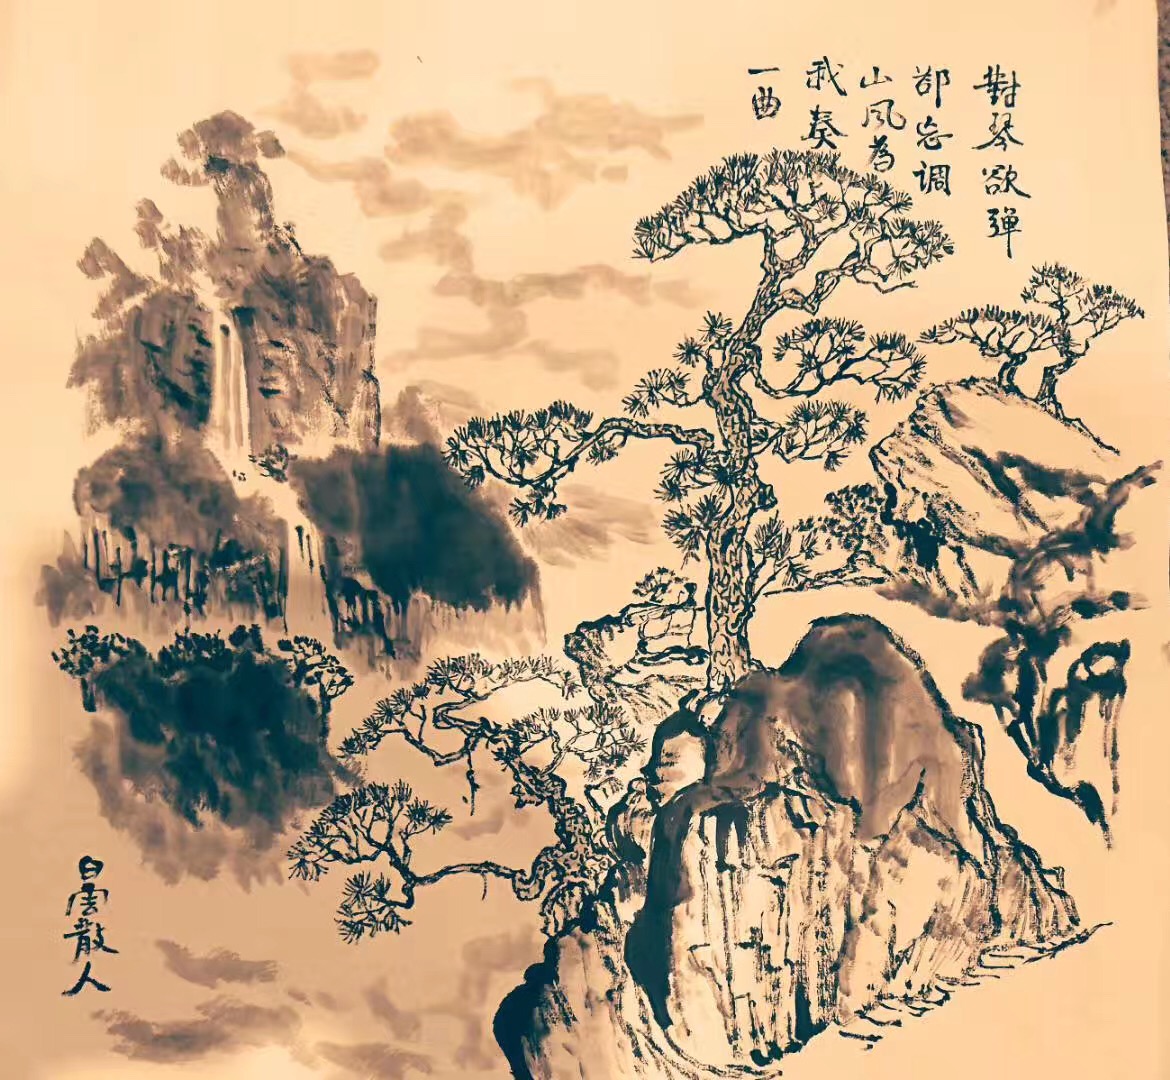 對琴欲弹
郤忘调
山风為
我奏
一曲
白雲散人